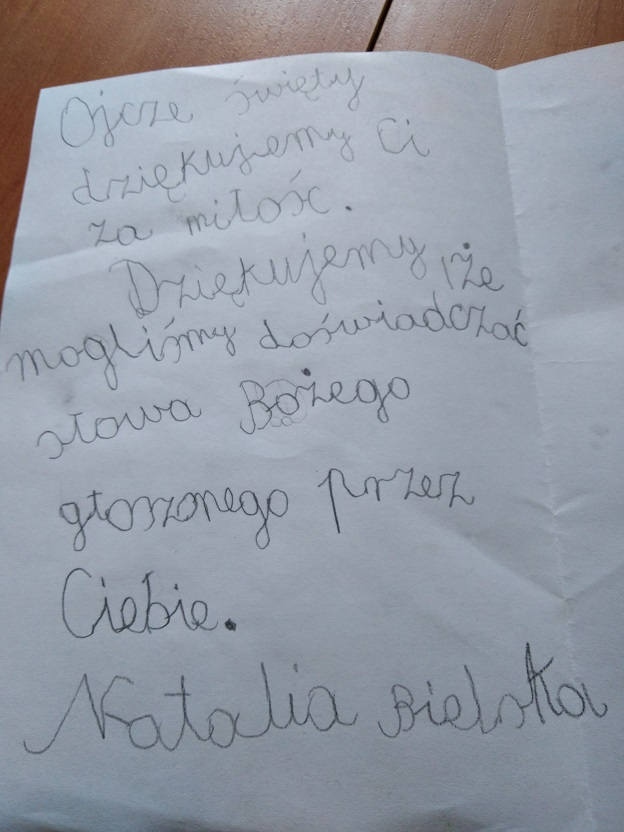 Ojcze święty
dziękujemy Ci
za miłość.
Dziękujemy, że
mogliśmy doświadczać
słowa Bożego
głoszonego przez
Ciebie.
Natalia Bielska